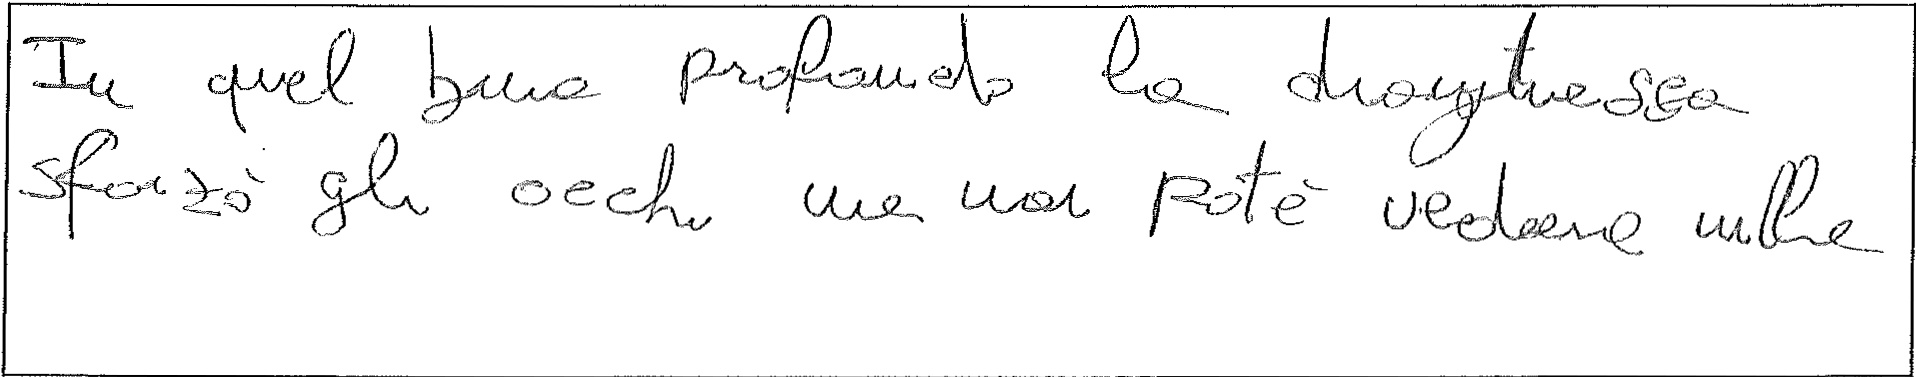 In quel buio profondo la dragatressa
sforzò gli occhi ma non poté vedere nulla